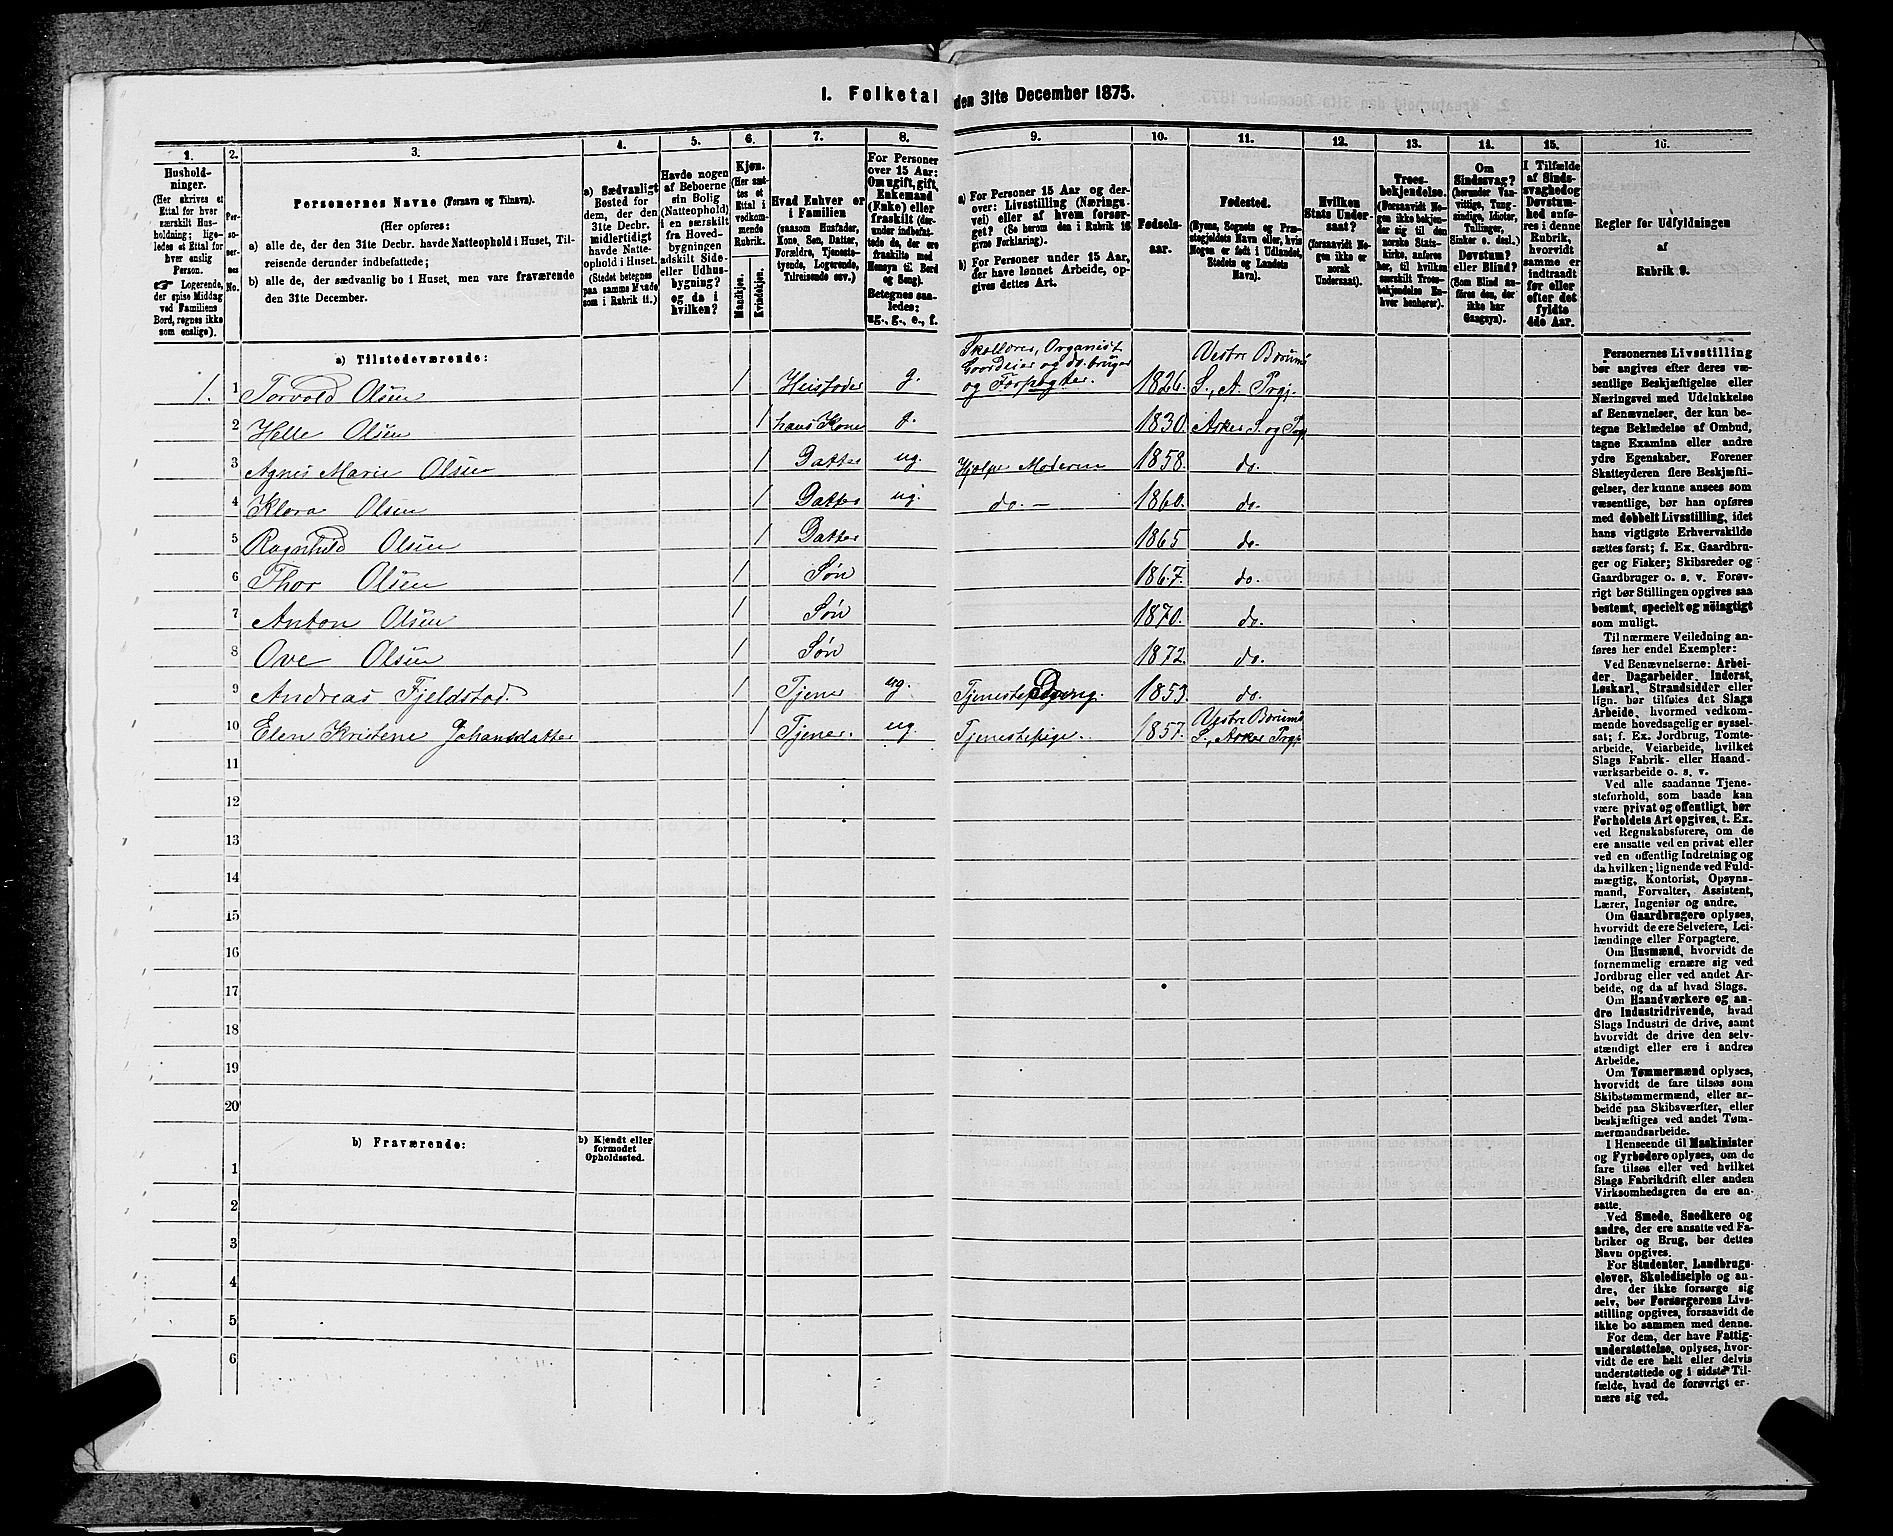 1. Folketal den 31te December 1875.
1. 2. 3. 4. 5. 6. 7. 8. 9. 10. 11. 12. 13. 14. 15. 16.
Hushold-
ninger.
(Her skrives et
Ettal for hver
særskilt Hus-
holdning; lige-
ledes et Ettal for
hver enslig
Person.
☛ Logerende,
der spise Middag
ved Familiens
Bord, regnes ikke
som enslige).
Per-
so-
ner-
nes
No.
Personernes Navne (Fornavn og Tilnavn).
(Her opføres:
a) alle de, der den 31te Decbr. havde Natteophold i Huset, Til-
reisende derunder indbefattede;
b) alle de, der sædvanlig bo i Huset, men vare fraværende
den 31te December.
a) Sædvanligt
Bosted for
dem, der den
31te Decbr.
midlertidigt
havde Natte-
ophold i Huset.
(Stedet betegnes
paa samme Maade
som i Rubrik 11.)
Havde nogen
af Beboerne
sin Bolig
(Natteophold)
i en særskilt
fra Hoved-
bygningen
adskilt Side-
eller Udhus-
bygning?
og da i
hvilken?
Kjøn.
(Her sæt-
tes et
Ettal i
vedkom-
mende
Rubrik.
Mandkjøn.
Kvindekjøn.
Hvad Enhver er
i Familien
(saasom Husfader,
Kone, Søn, Datter,
Forældre, Tjeneste-
tyende, Logerende,
Tilreisende osv.)
For Personer
over 15 Aar:
Om ugift, gift,
Enkemand
(Enke) eller
fraskilt (der-
under indbefat-
tede de, der ere
fraskilte med
Hensyn til Bord
og Seng).
Betegnes saa-
ledes:
ug., g., e., f.
a) For Personer 15 Aar og der-
over: Livsstilling (Nærings-
vei) eller af hvem forsør-
get? (Se herom den i Rubrik 16
givne Forklaring).
b) For Personer under 15 Aar,
der have lønnet Arbeide, op-
gives dettes Art.
Fødsels-
aar.
Fødested.
(Byens, Sognets og Præ-
stegjeldets Navn eller, hvis
Nogen er født i Udlandet,
Stedets og Landets
Navn).
Hvilken
Stats Under-
saat?
(forsaavidt No-
gen ikke er
norsk
Undersaat).
Troes-
bekjendelse.
(Forsaavidt No-
gen ikke bekjen-
der sig til den
norske Stats-
kirke, anføres
her, til hvilken
særskilt Troes-
bekjendelse En-
hver henhører).
Om
Sindssvag?
(herunder Van-
vittige, Tung-
sindige, Idioter,
Tullinger,
Sinker o. desl.)
Døvstum?
eller Blind?
(Som Blind an-
føres den, der
ikke har
Gangsyn).
I Tilfælde
af Sinds-
svaghed og
Døvstum-
hed anfø-
res i denne
Rubrik,
hvorvidt
samme er
indtraadt
før eller
efter det
fyldte
4de Aar.
Regler for Udfyldningen
af
Rubrik 9.
a) Tilstedeværende:
1. 1 Torvold Olsen 1 Husfader g. Skollærer, Organist Gaardeier og do. bruger og Forpagter. 1826. Vestre Bærums S., A. Prgj.
2 Helle Olsen 1 hans Kone g. 1830. Asker S. og Prgj.
3 Agnes Marie Olsen 1 Datter ug. Hjælpe Moderen 1858. do.
4 Klara Olsen 1 Datter ug. do. — 1860. do.
5 Ragnhild Olsen 1 Datter 1865 do.
6 Thor Olsen 1 Søn 1867. do.
7 Anton Olsen 1 Søn 1870. do.
8 Ove Olsen 1 Søn 1872. do.
9 Andreas Fjeldstad. 1 Tjener ug. Tjenestedreng. 1853. do.
10 Elen Kristene Johansdatter 1 Tjener. ug. Tjenestepige. 1857. Vestre Bærums S., Asker Prgj.
11
12
13
14
15
16
17
18
19
20
b) Fraværende:
b) Kjendt eller
formodet
Opholdssted.
1
2
3
4
5
6
Personernes Livsstilling
bør angives efter deres væ-
sentlige Beskjæftigelse eller
Næringsvei med Udelukkelse
af Benævnelser, der kun be-
tegne Beklædelse af Ombud,
tagne Examina eller andre
ydre Egenskaber. Forener
Skatteyderen flere Beskjæfti-
gelser, der kunne ansees som
væsentlige, bør han opføres
med dobbelt Livsstilling, idet
hans vigtigste Erhvervskilde
sættes først; f. Ex. Gaardbru-
ger og Fisker; Skibsreder og
Gaardbruger o. s. v. Forøv-
rigt bør Stillingen opgives saa
bestemt, specielt og nøiagtigt
som muligt.
Til nærmere Veiledning an-
føres her endel Exempler:
Ved Benævnelserne: Arbei-
der, Dagarbeider, Inderst,
Løskarl, Strandsidder eller
lign. bør tilføies det Slags
Arbeide, hvormed vedkom-
mende hovedsagelig er syssel-
sat; f. Ex. Jordbrug, Tomte-
arbeide, Veiarbeide, hvilket
Slags Fabrik- eller Haand-
værksarbeide o. s. v.
Ved alle saadanne Tjene-
steforhold, som baade kan
være privat og offentligt, bør
Forholdets Art opgives, t. Ex.
ved Regnskabsførere, om de
ere ansatte ved en privat eller
ved en offentlig Indretning og
da hvilken; lignende ved Fuld-
mægtig, Kontorist, Opsyns-
mand, Forvalter, Assistent,
Lærer, Ingeniør og andre.
Om Gaardbrugere oplyses,
hvorvidt de ere Selveiere, Lei-
lændinge eller Forpagtere.
Om Husmænd, hvorvidt de
fornemmelig ernære sig ved
Jordbrug eller ved andet Ar-
beide, og da af hvad Slags.
Om Haandværkere og an-
dre Industridrivende, hvad
Slags Industri de drive, samt
hvorvidt de drive den selv-
stændigt eller ere i andres
Arbeide.
Om Tømmermænd oplyses,
hvorvidt de fare tilsøs som
Skibstømmermænd, eller ar-
beide paa Skibsværfter, eller
beskjæftiges ved andet Tøm-
mermandsarbeide.
I Henseende til Maskinister
og Fyrbødere oplyses, om de
fare tilsøs eller ved hvilket
Slags Fabrikdrift eller anden
Virksomhedsgren de ere an-
satte.
Ved Smede, Snedkere og
andre, der ere ansatte ved Fa-
briker og Brug, bør dettes
Navn opgives.
For Studenter, Landbrugs-
elever, Skoledisciple og an-
dre, der ikke forsørge sig
selv, bør Forsørgerens Livs-
stilling opgives, forsaavidt de
ikke bo sammen med denne.
For dem, der have Fattig-
understøttelse, oplyses, hvor-
vidt de ere helt eller delvis
understøttede og i sidste Til-
fælde, hvad de forøvrigt er-
nære sig ved.